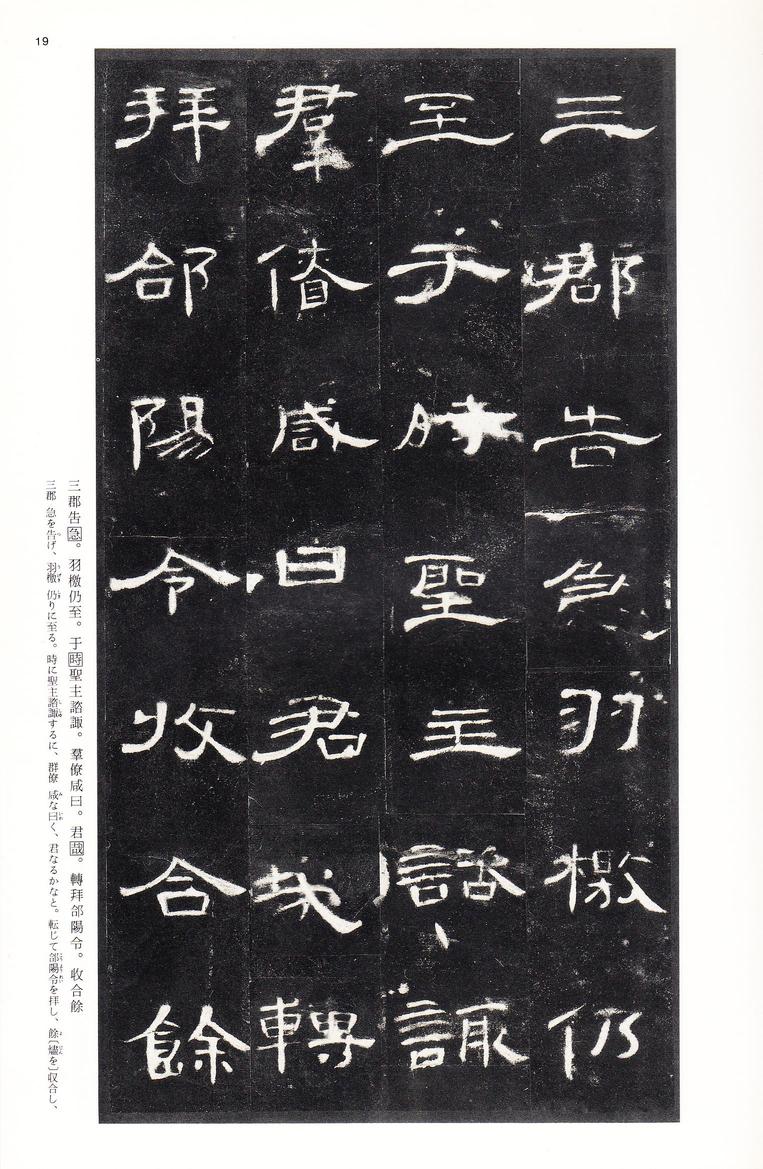 19
三郡告急羽檄仍
至于時聖主諮諏
羣僚咸曰君哉轉
拜郃陽令收合餘
三郡告急。羽檄仍至。于時聖主諮諏。羣僚咸曰。君哉。轉拜郃陽令。收合餘
三郡 急を告げ、羽檄 仍りに至る。時に聖主諮諏するに、群僚 咸な曰く、君なるかなと。転じて郃陽令を拝し、餘〔燼を〕収合し、